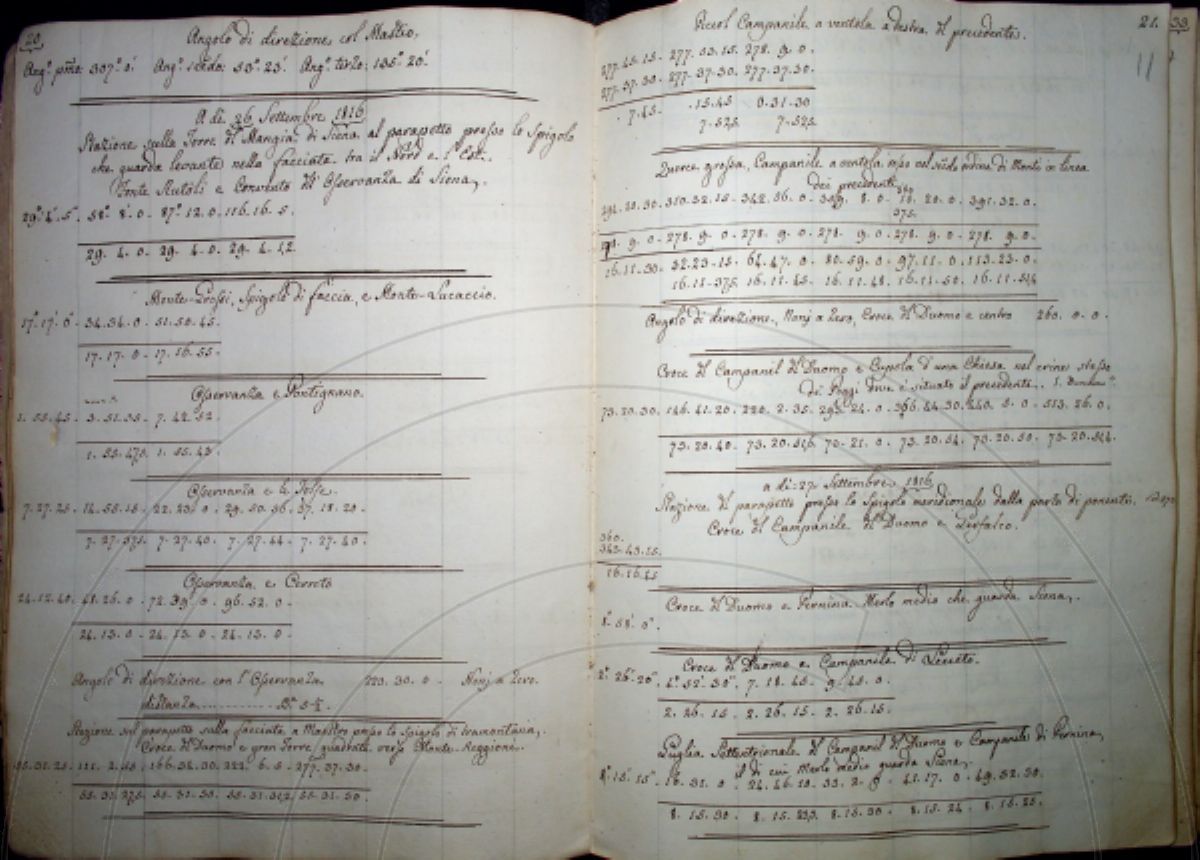 20.
Angolo di direzione col Mastio.
Ang.° pmo: 337.° 0.' Ang.° secdo: 53.° 23.' Ang.° terzo: 135.° 20.'
A dì 26 Settembre 1816
Stazione sulla Torre di Mangia di Siena al parapetto presso lo Spigolo
che guarda levante nella facciata tra il Nord e l'Est.
Fonte Rutoli e Convento dell'Osservanza di Siena.
29.° 4.' 5." 58.° 8.' 0 - 87.° 12. 0. 116. 16. 5.
29. 4. 0 - 29. 4. 0. 29. 4. 1,2
Monte-Grossi, Spigolo di faccia, e Monte-Lucaccio.
17.° 17.' 0." 34. 34. 0 - 51. 50. 45.
17. 17. 0 - 17. 16. 55.
Osservanza e Pontignano.
1. 55. 45. 3. 51. 35 - 7. 42. 52.
1. 55. 47,5 1. 55. 43.
Osservanza e le Tolfe.
7. 27. 25 - 14. 55. 15 - 22. 23. 0 - 29. 50. 56 - 37. 18. 20.
7. 27. 37,5 - 7. 27. 40. 7. 27. 44 - 7. 27. 40.
Osservanza e Cerreto
24. 12. 40. 48. 26. 0 - 72. 39. 0 - 96. 52. 0 -
24. 13. 0 - 24. 13. 0 - 24. 13. 0 -
Angolo di direzione con l'Osservanza 223. 30. 0 - Nonj a Zero.
distanza
Stazione sul parapetto sulla facciata a Maestro presso lo Spigolo di tramontana,
Croce del Duomo e gran Torre quadrata verso Monte-Reggione.
55. 31. 25. 111. 2. 55. 166. 34. 30. 222. 6. 5 - 277. 37. 30.
55. 31. 27,5 55. 31. 30. 55. 31. 31,2 55. 31. 30.
21.
33
11
Piccol Campanile a ventola a destra del precedente.
277. 45. 15 - 277. 53. 15. 278. 9. 0.
277. 37. 30 - 277. 37. 30. 277. 37. 30.
7. 45. - . 15. 45 0. 31. 30
7. 52,5 7. 52,5
Querce grossa, Campanile a ventola
dei precedenti
294. 20. 30. 310. 32. 15 - 342. 56. 0 -
9. 0 - 278. 9. 0 - 278. 9. 0 - 278. 9. 0 - 278. 9. 0 - 278. 9. 0 -
16. 11. 30. 32. 23. 15 - 64. 47. 0 - 80. 59. 0 - 97. 11. 0 - 113. 23. 0 -
16. 11. 37,5 16. 11. 45 - 16. 11. 48. 16. 11. 50. 16. 11.
Angolo di direzione, Nonj a Zero, Croce del Duomo e centro 260. 0. 0 -
Croce del Campanil del Duomo e Cupola d'una Chiesa nel crine stesso
dei Poggi dove è situato il precedente.
73. 20. 30. 146. 41. 20 - 220. 2. 35. 293. 24. 0 - 366. 44. 30. 440. 5. 0 - 513. 26. 0.
73. 20. 40. 73. 20. 51,6 73. 21. 0 - 73. 20. 54. 73. 20. 50. 73. 20.
a dì: 27. Settembre 1816
Stazione del parapetto presso lo Spigolo meridionale dalla parte di ponente.
Croce del Campanile del Duomo e Gerfalco.
360.
343. 43. 15.
16. 16. 45
Croce del Duomo e Pernina. Merlo medio che guarda Siena,.
8.° 58.' 0."
Croce del Duomo e Campanile di Lecceto.
2.° 26.' 20." 4.° 52.' 30." 7. 18. 45 - 9. 45. 0 -
2. 26. 15. 2. 26. 15 - 2. 26. 15
Guglia Settentrionale del Campanil del Duomo e Campanile di Pernina,
il di cui Merlo medio guarda Siena,.
8.° 15.' 15." 16. 31. 0 - 24. 46. 10. 33. 2. 0 - 41. 17. 0 - 49. 32. 30.
8. 15. 30 - 8. 15. 23,3 8. 15. 30 - 8. 15. 24 - 8. 15. 25.